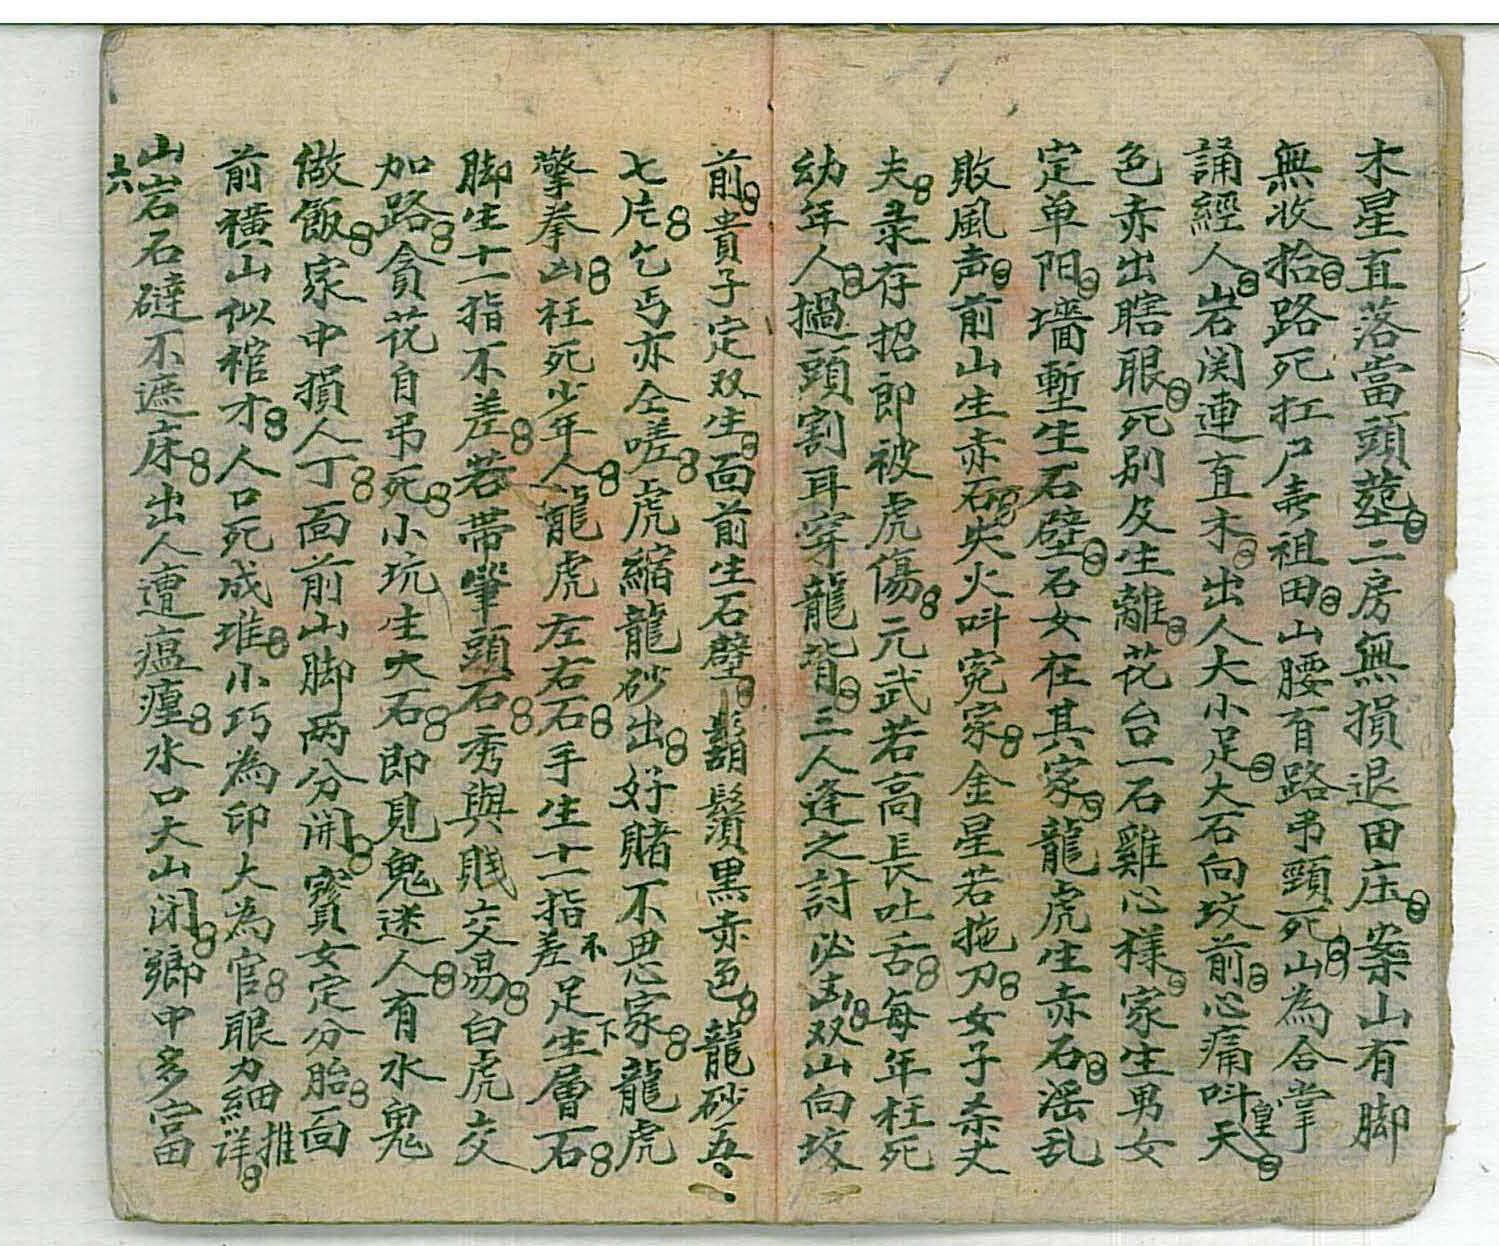 木星直落當頭葬二房無損退田庄案山有脚
無收拾路死扛尸賣祖田山腰有路吊頸死山為合掌
誦經人岩関連直木出人大小足大石向坟前心痛呌天皇
色赤出瞎眼死别及生離花台一石雞心樣家生男女
定单阳墻塹生石壁石女在其家龍虎生赤石淫乱
敗風声前山生赤石失火呌寃家金星若拖刀女子杀丈
夫录存招即被虎傷元武若高長吐舌每年枉死
幼年人撾頭割耳穿龍背三人逢之討必凶双山向坟
前貴子定双生面前生石壁鬍鬚黒赤色龍砂五〻
七片乞丐亦仝嗟虎縮龍砂出好賭不思家龍虎
擎拳凶枉死少年人龍虎左右石手生十一指不差足下生層石
脚生十一指不差若带筆頭石秀與賎交易白虎交
加路貪花自吊死小坑生大石即見鬼迷人有水鬼
做飯家中損人丁面前山脚两分開寳女定分胎面
前横山似棺才人口死成堆小巧為印大為官眼力細推詳
山岩石礕不遮床出人遭瘟㾏水口大山闭鄉中多富
六